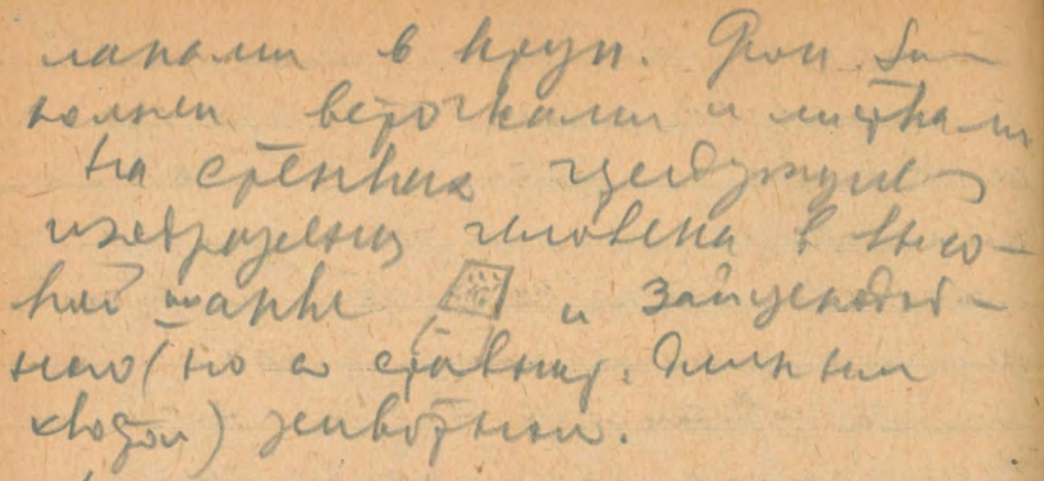 лапами в круп. Фон за-
полнен веточками и листками
На стенках чередующиеся
изображения человека в высо-
кой шапке и зайцеподоб-
ного (но со сравнит. длинным
хвостом) животным.